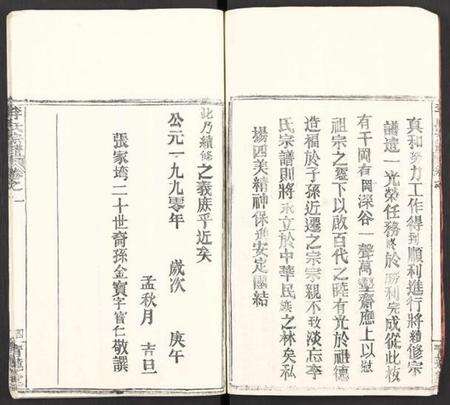 真和努力工作得到順利進行將續修宗
譜這一光榮任務終於勝利完成從此枝
有千岡有岡深谷一聲萬壑齊應上以慰
祖宗之靈下以啟百代之曉有光於祖德
造福於子孫近遷之宗宗親不致淡忘李
氏宗譜則將永立於中華民族之林矣私
場西美精神保進安定團結
此乃續修之義庶乎近矣
公元一九九零年 歲次 庚午
孟秋月 吉旦
張家塆二十世裔孫金寶字官仁敬譔
李氏宗譜 卷之一
四